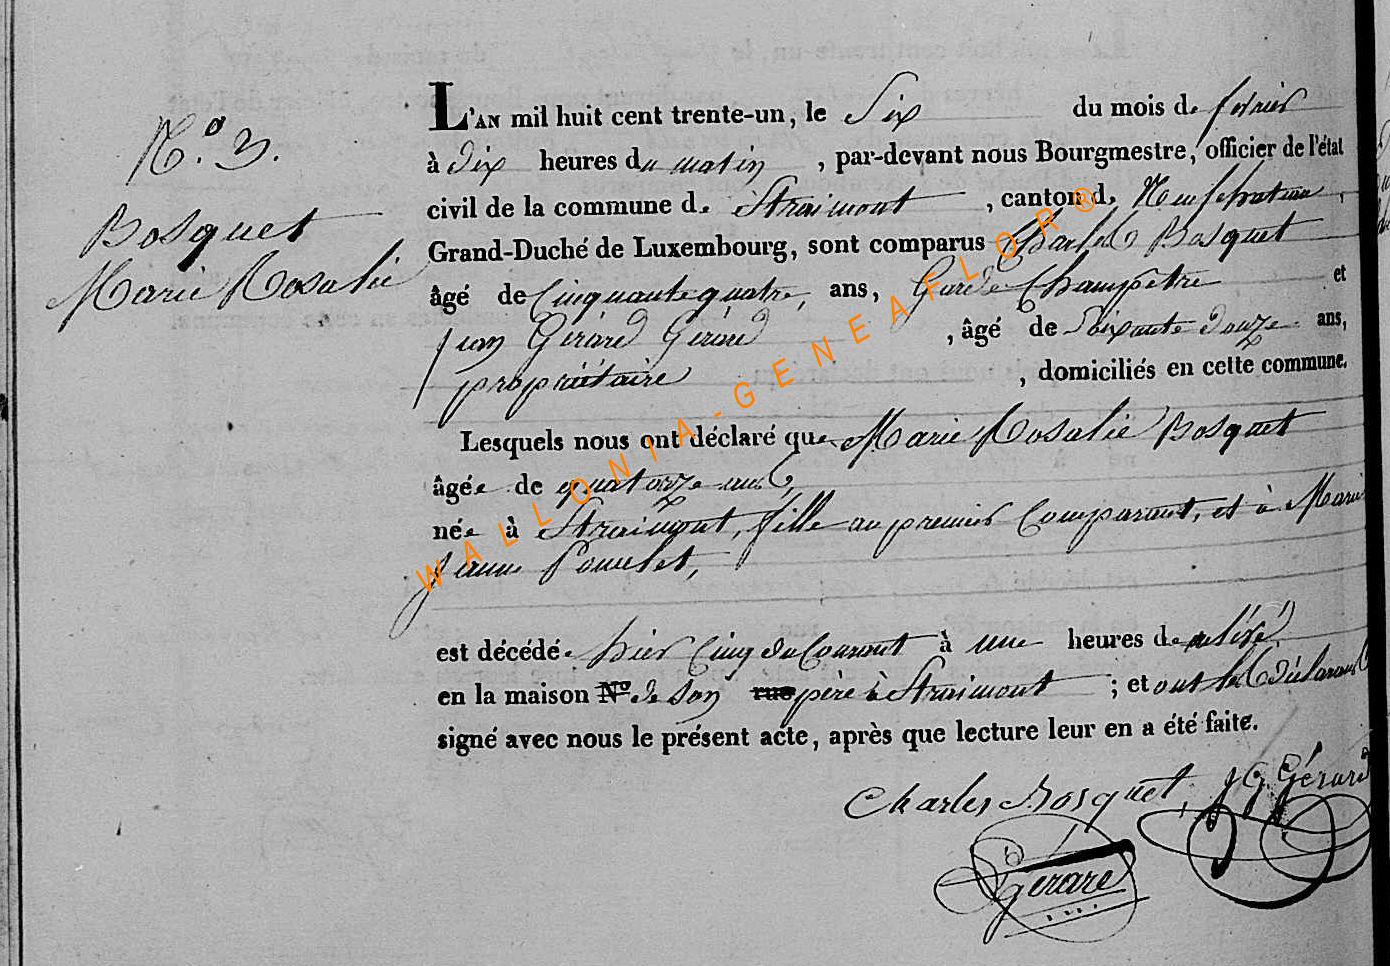 N.º 3.
Bosquet
Marie Rosalie
L'AN mil huit cent trente-un, le Six du mois de février
à dix heures du matin, par-devant nous Bourgmestre, officier de l'état
civil de la commune de Straimont, canton de Neufchateau,
Grand-Duché de Luxembourg, sont comparus Charles Bosquet
âgé de Cinquante quatre, ans, Garde Champêtre et
Jean Gérard Gérard, âgé de Soixante douze ans,
propriétaire, domiciliés en cette commune.
Lesquels nous ont déclaré que Marie Rosalie Bosquet
âgée de quatorze ans,
née à Straimont, fille au premier Comparant, et à Marie
Jeanne Poncelet,
est décédée hier Cinq du Courant à une heures de relevé
en la maison Nº de son rue père à Straimont ; et ont les Déclarans
signé avec nous le présent acte, après que lecture leur en a été faite.
Charles Bosquet, J G Gérard
Gérard
WALLONIA-GENEAFLOR®